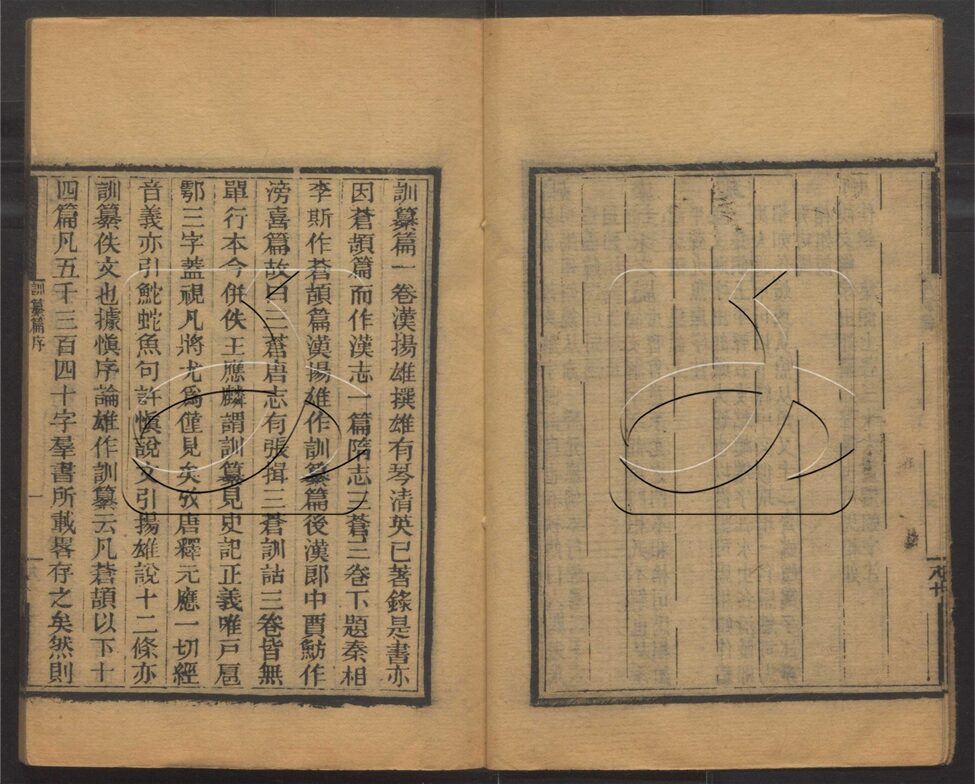 訓纂篇一卷漢揚雄撰雄有琴清英已著錄是書亦
因蒼頡篇而作漢志一篇隋志三蒼三卷下題秦相
李斯作蒼頡篇漢揚雄作訓纂篇後漢郎中賈魴作
滂喜篇故曰三蒼唐志有張揖三蒼訓詁三卷皆無
單行本今併佚王應麟謂訓纂見史記正義唯戸扈
鄠三字蓋視凡將尤爲僅見矣攷唐釋元應一切經
音義亦引鮀蛇魚句許愼說文引揚雄說十二條亦
訓纂佚文也據愼序論雄作訓纂云凡蒼頡以下十
四篇凡五千三百四十字羣書所載畧存之矣然則
訓纂篇序
一